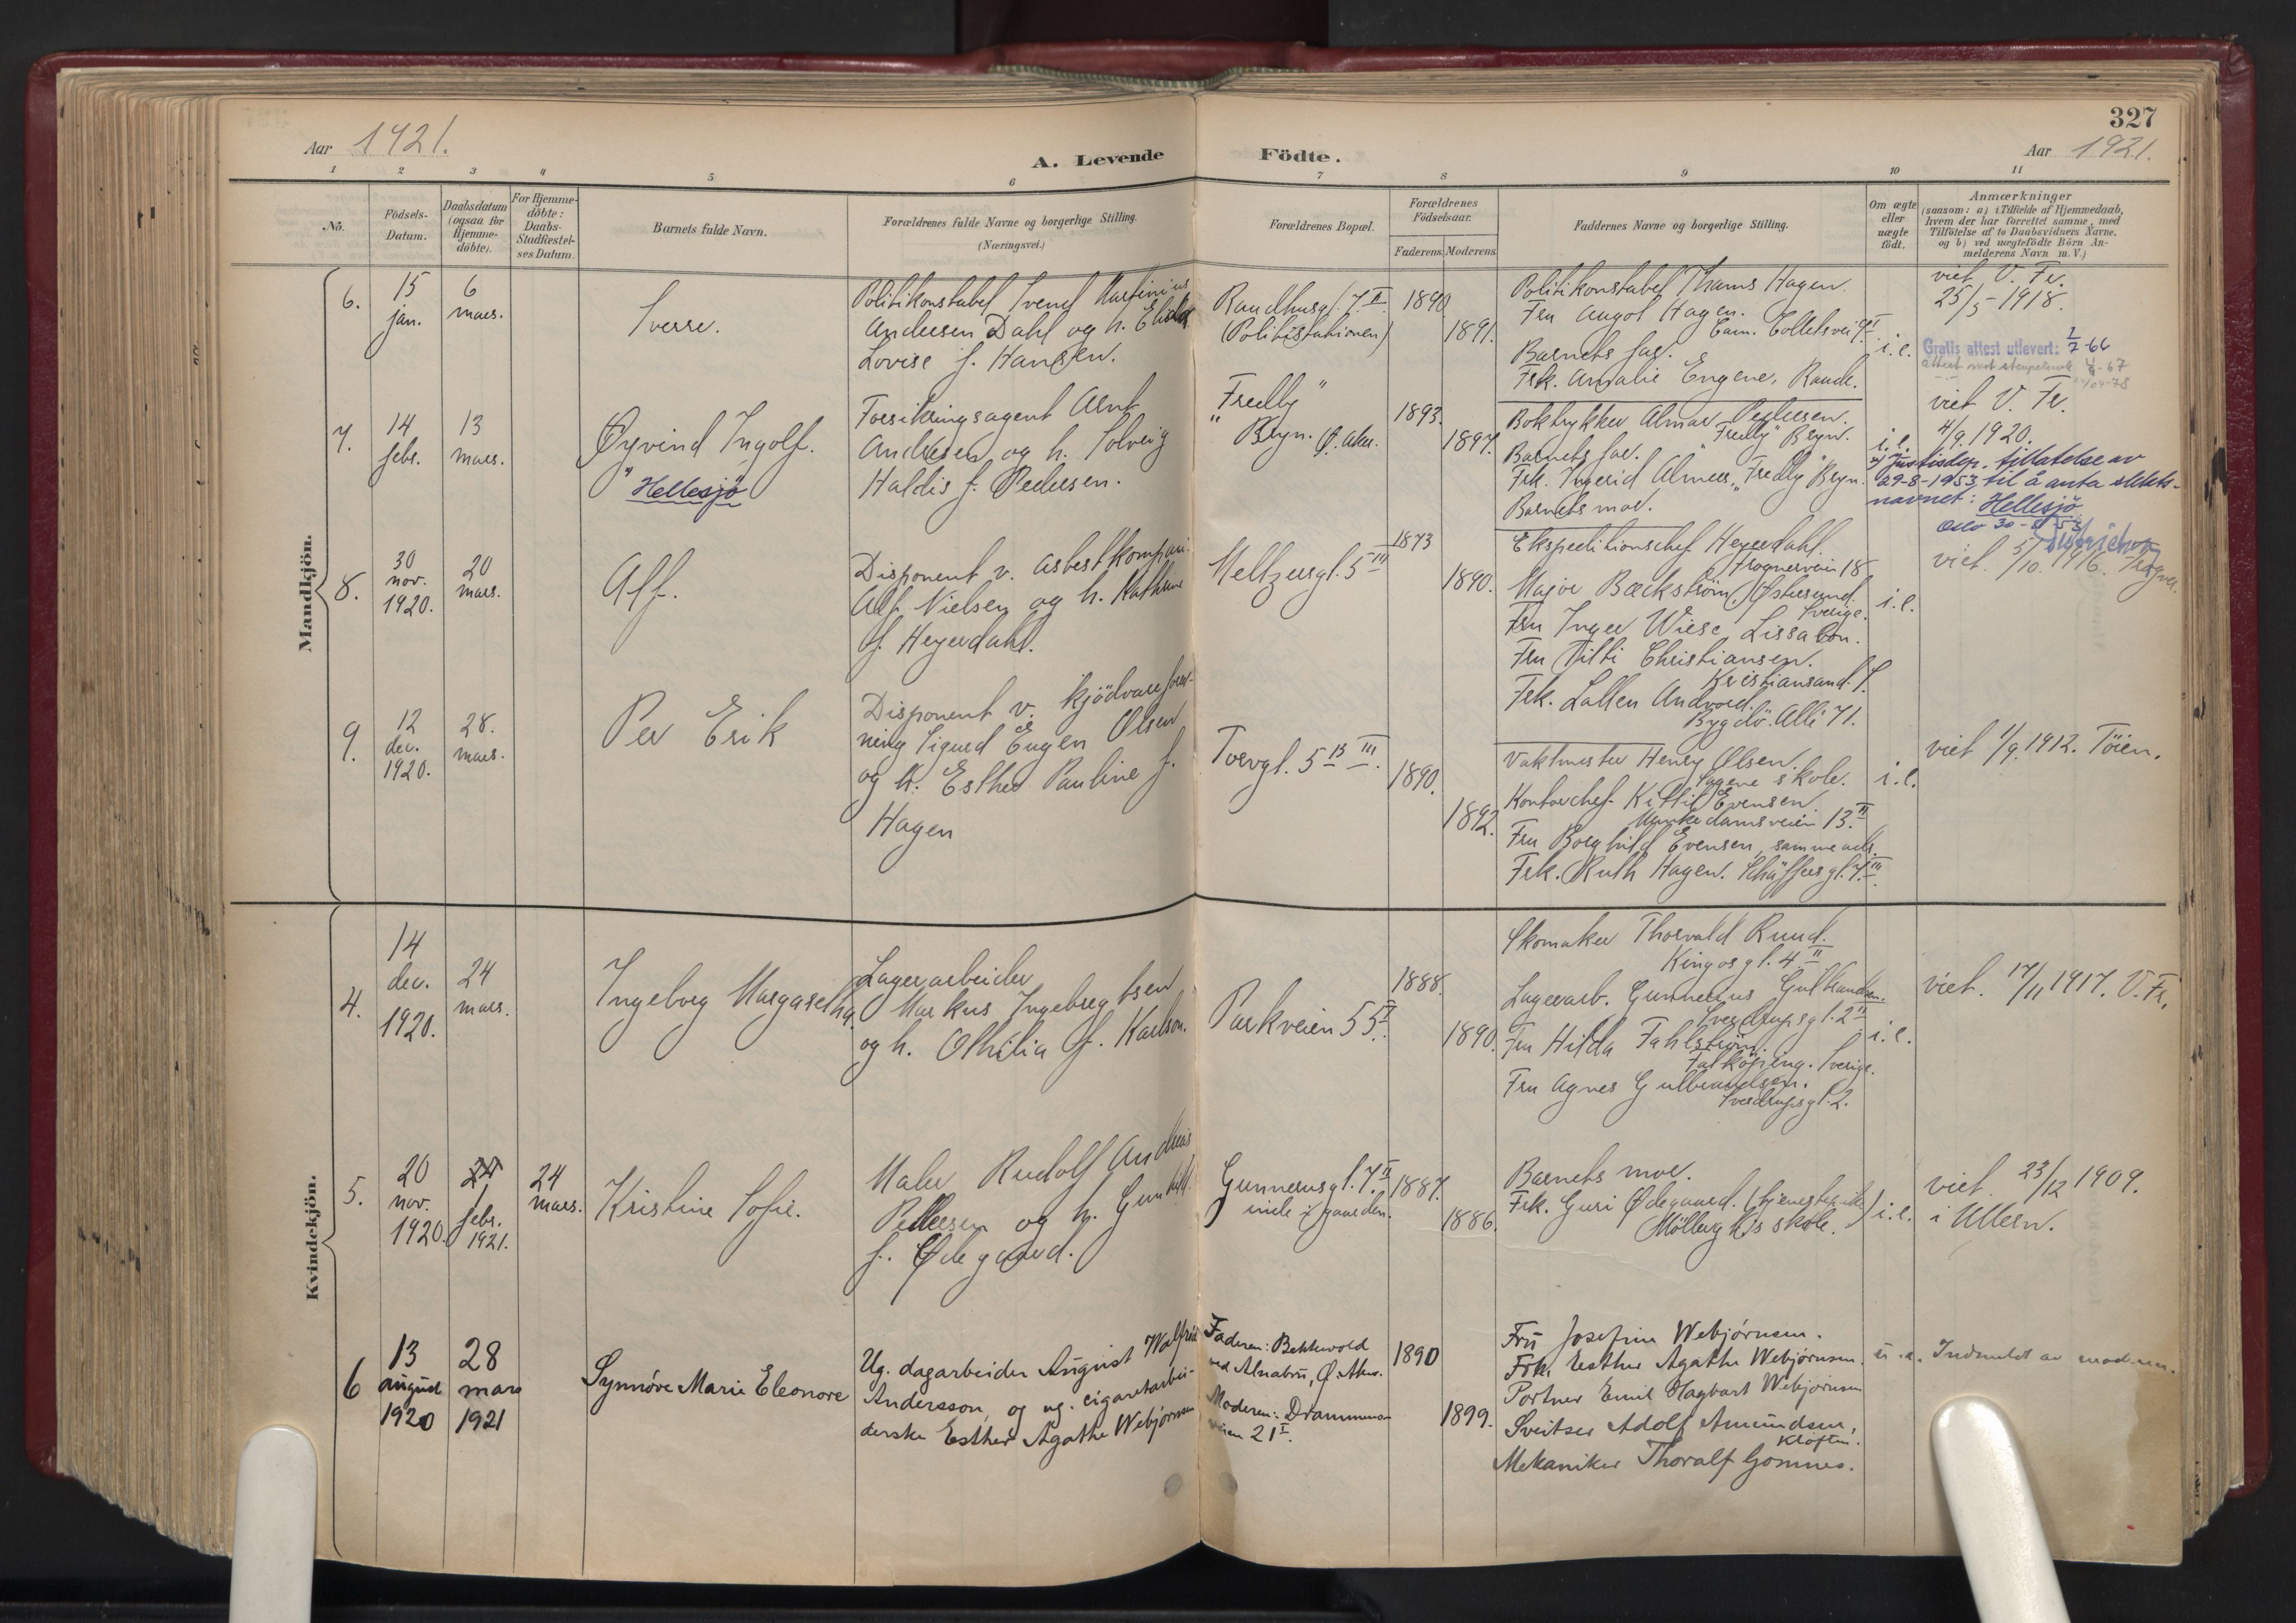 327
Aar 1921.
A. Levende Födte.
Aar 1921.
1 2 3 4 5 6 7 8 9 10 11
No.
Födsels-Datum.
Daabsdatum (ogsaa for Hjemme-döbte).
For Hjemme-döbte: Daabs-Stadfestel-ses Datum.
Barnets fulde Navn.
Forældrenes fulde Navne og borgerlige Stilling.
(Næringsvei.)
Forældrenes Bopæl.
Forældrenes Födselsaar.
Faderens. Moderens.
Faddernes Navne og borgerlige Stilling.
Om ægte eller uægte födt.
Anmærkninger
(saasom: a) i Tilfælde af Hjemmedaab,
hvem der har forrettet samme, med
Tilföielse af to Daabsvidners Navne,
og b) ved uægtefödte Börn An-
melderens Navn m. V.)
Mandkjön.
6.
15
jan.
6
mars.
Sverre.
Politikonstabel Svend Martinius
Andersen Dahl og h.
Lovise f. Hansen.
Raadhusgt. 7 II
(Politistationen)
1890
1891.
Politikonstabel Thams Hagen.
Fru Angot Hagen.
Cam. Colletsvei 9 II
Barnets far.
Frk. Amalie Engene, Raade.
i. e.
viet V. Fr.
25/5-1918.
Gratis attest utlevert: 1/7-66
7.
14
febr.
13
mars.
Øyvind Ingolf.
" Hellesjö
Forsikringsagent Arnt
Andresen og h. Solveig
Haldis f. Pedersen.
"Fredly"
Bryn. Ø. Aker.
1893.
1897.
Boktrykker Almar Pedersen.
"Fredly" Bryn.
Barnets far.
Frk. Ingerid Almers, "Fredly" Bryn.
Barnets mor.
i. e.
viet V. Fr.
4/9 1920.
Justisdep. tillatelse av
29-8-1953 til å anta slekts-
navnet: Hellesjö
Oslo 30-
8.
30
nov.
1920.
20
mars.
Alf.
Disponent v. Asbestkompani
Alf Nielsen og h. Kathrine
f. Heyerdahl.
Meltzersgt. 5 III
1873
1890.
Ekspeditionschef Heyerdahl.
Frognerveien 18
Major Bæckström, Østersund.
Sverige.
Fru Inger Wiese, Lissabon.
Fru Titti Christiansen.
Kristiansand. S.
Frk. Lallen Andvord.
Bygdö Allé 71.
i. e.
viet. 5/10. 1916.
9.
12
dec.
1920.
28.
mars.
Per Erik
Disponent v. kjödvareforret-
ning Sigurd Eugen Olsen
og h. Esther Pauline f.
Hagen
Torvgt. 5 B III.
1890.
1892.
Vaktmester Henry Olsen.
Sagene skole.
Kontorchef Kittil Evensen.
Munkedamsveien 13. II
Fru Borghild Evensen, samme adr.
Frk. Ruth Hagen. Schäffersgt. 7. III
i. e.
viet 1/9. 1912. Töien.
Kvindekjön.
4.
14
dec.
1920.
24
mars.
Ingeborg Margaretha.
Lagerarbeider
Markus Ingebregtsen
og h. Othilia f. Karlson.
Parkveien 55 II
1888.
1890.
Skomaker Thorvald Ruud.
Kingosgt. 4 II
Lagerarb. Gunnerius Gulbrandsen.
Sverdrupsgt. 2 II
Fru Hilda Fahlström.
Falköping. Sverige.
Fru Agnes Gulbrandsen.
Sverdrupsgt. 2.
i. e.
viet. 17/11 1917. V. Fr.
5.
20
nov.
1920.
24
febr.
1921.
24
mars.
Kristine Sofie.
Maler Rudolf Andreas
Pettersen og h. Gunhild
f. Ødegaard.
Gunnerusgt. 7. II
inde i gaarden.
1887.
1886.
Barnets mor.
Frk. Guri Ødegaard. (tjenestepike)
Möllergt's skole.
i. e.
viet. 23/12 1909.
i Ullern.
6
13
august
1920
28
mars
1921
Synnöve Marie Eleonore
Ug. dagarbeider August Walfrid
Andersson, og ug. cigaretarbei-
derske Esther Agathe Webjørnsen
Faderen: Bekkevold
ved Alnabru, Ø. Aker.
Moderen: Drammens-
veien 21 I.
1890
1899.
Fru Josefine Webjörnsen.
Frk. Esther Agathe Webjörnsen.
Portner Emil Hagbart Webjörnsen
Sveitser Adolf Amundsen,
Klöften.
Mekaniker Thoralf Gomnes.
u. e.
Indmeldt av moderen.